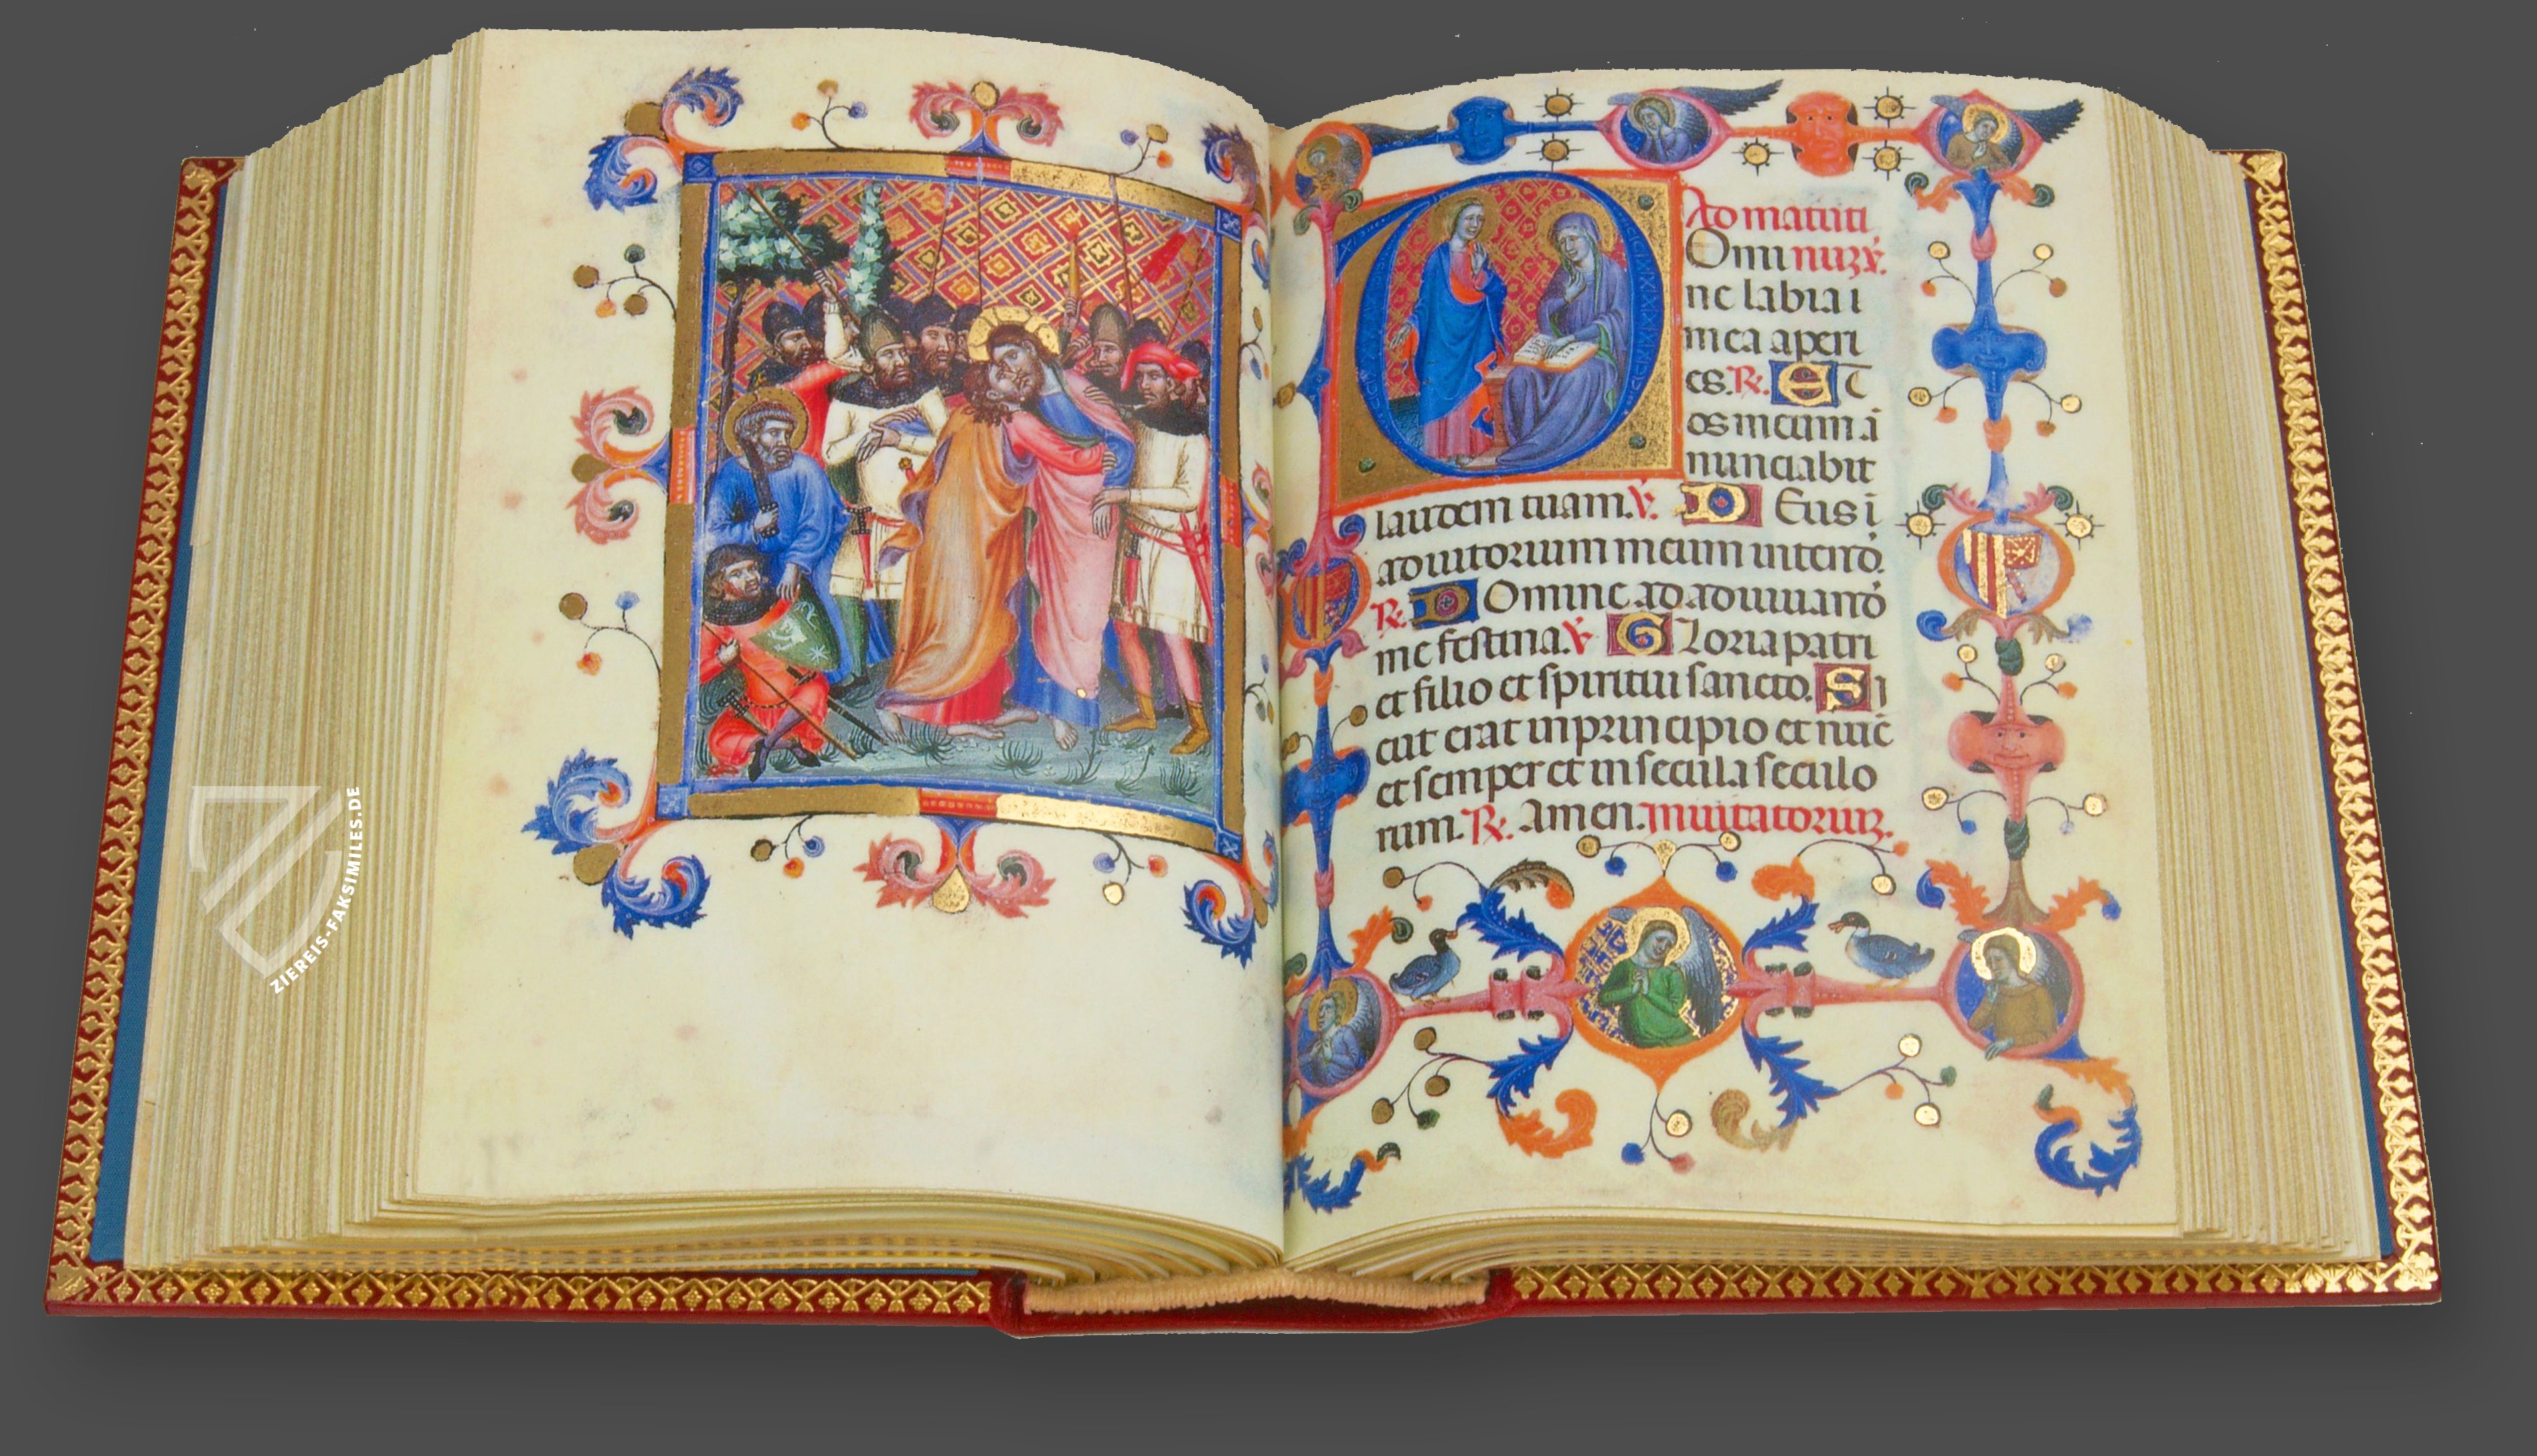 Ad matuti
Omi nuz ℣.
ne labia i
mea aperi
es. ℟. Et
os meum ā
nunciabit
laudem tuam. ℣. Deus ī
adiutorium meum intend̄.
℟. Domine ad adiuuand̄ū
me festina. ℣. Gloria patri
et filio et spiritui sancto. Si
cut erat in principio et nūc
et semper et in secula seculo
rum. ℟. Amen. Inuitatoriuz.
ZIEREIS-FAKSIMILES.DE